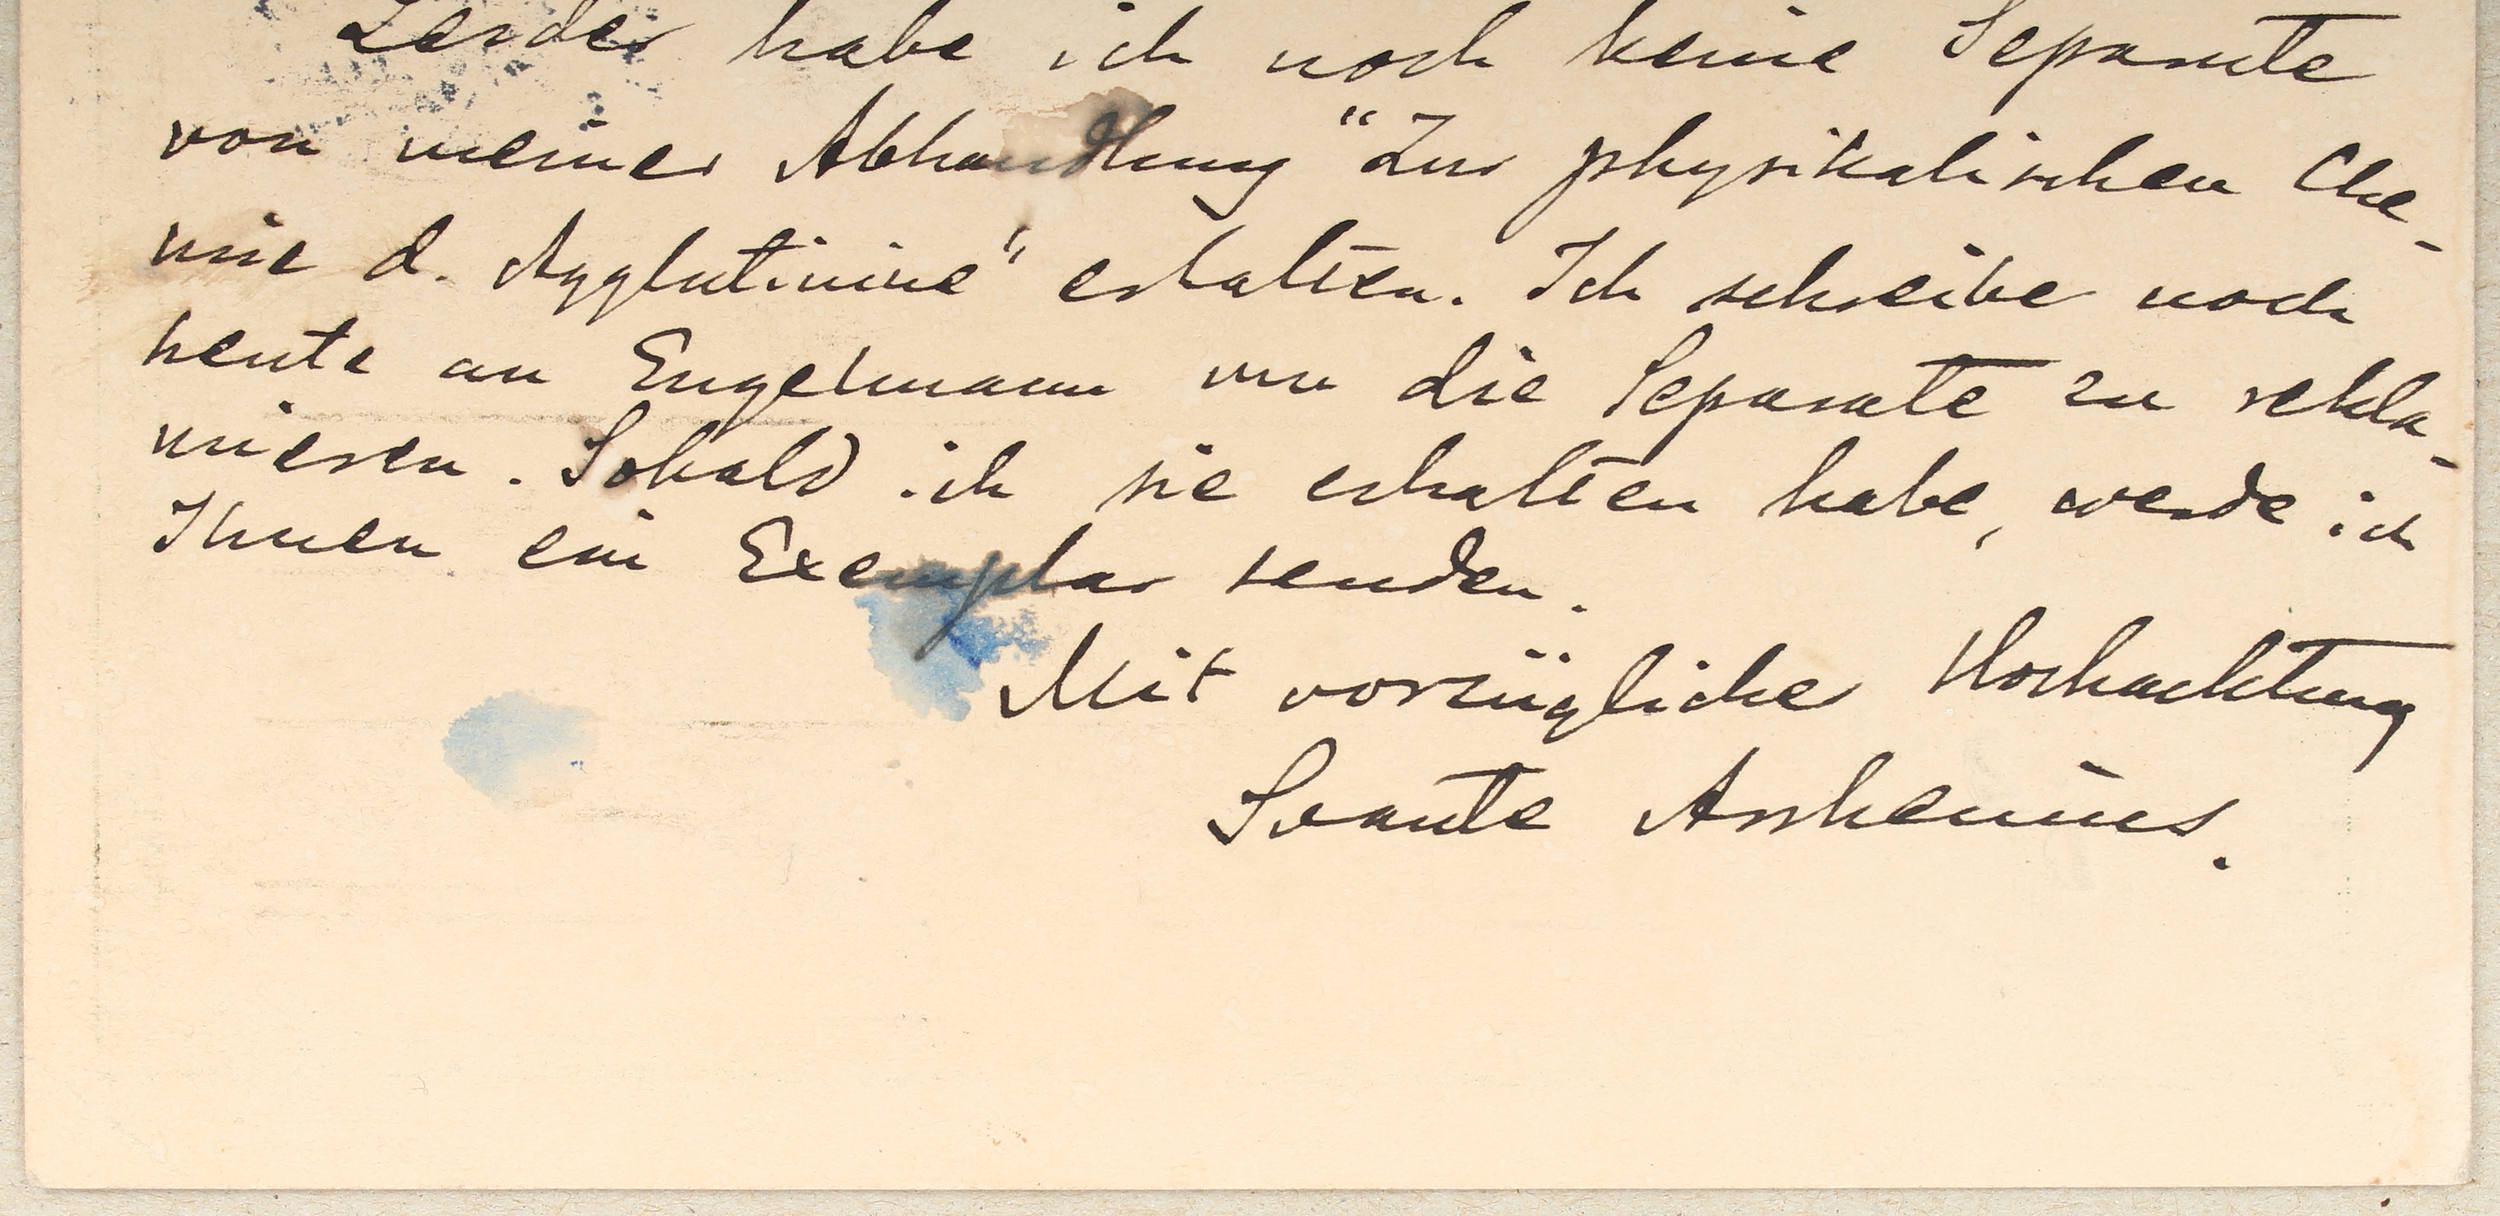 Leider habe ich noch keine Separate
von meiner Abhandlung "Zur physikalischen Che-
mie d. Agglutinine" erhalten. Ich schreibe noch
heute an Engelmann um die Separate zu rekla-
mieren. Sobald ich sie erhalten habe, werde ich
Ihnen ein Exemplar senden.
Mit vorzüglicher Hochachtung
Svante Arrhenius.